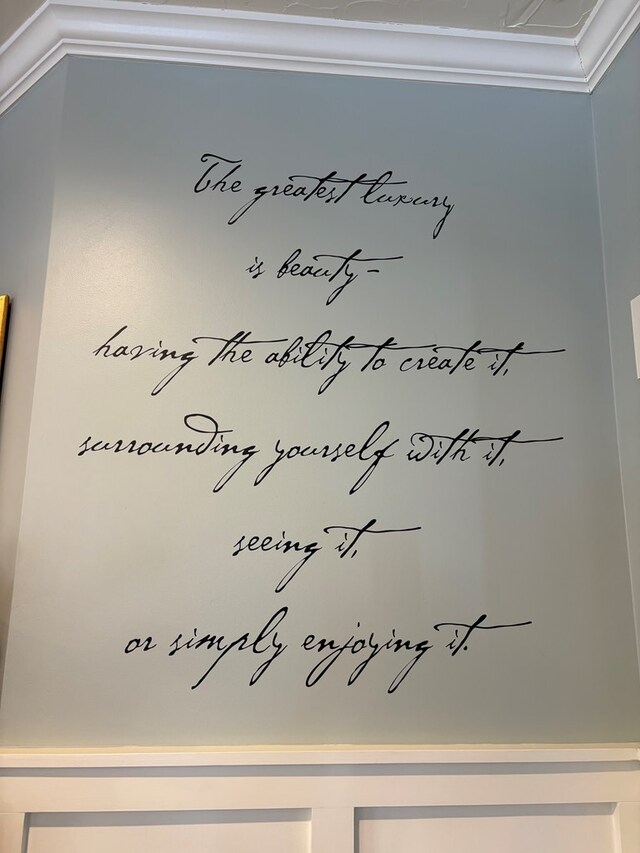 The greatest luxury
is beauty-
having the ability to create it,
surrounding yourself with it,
seeing it,
or simply enjoying it.